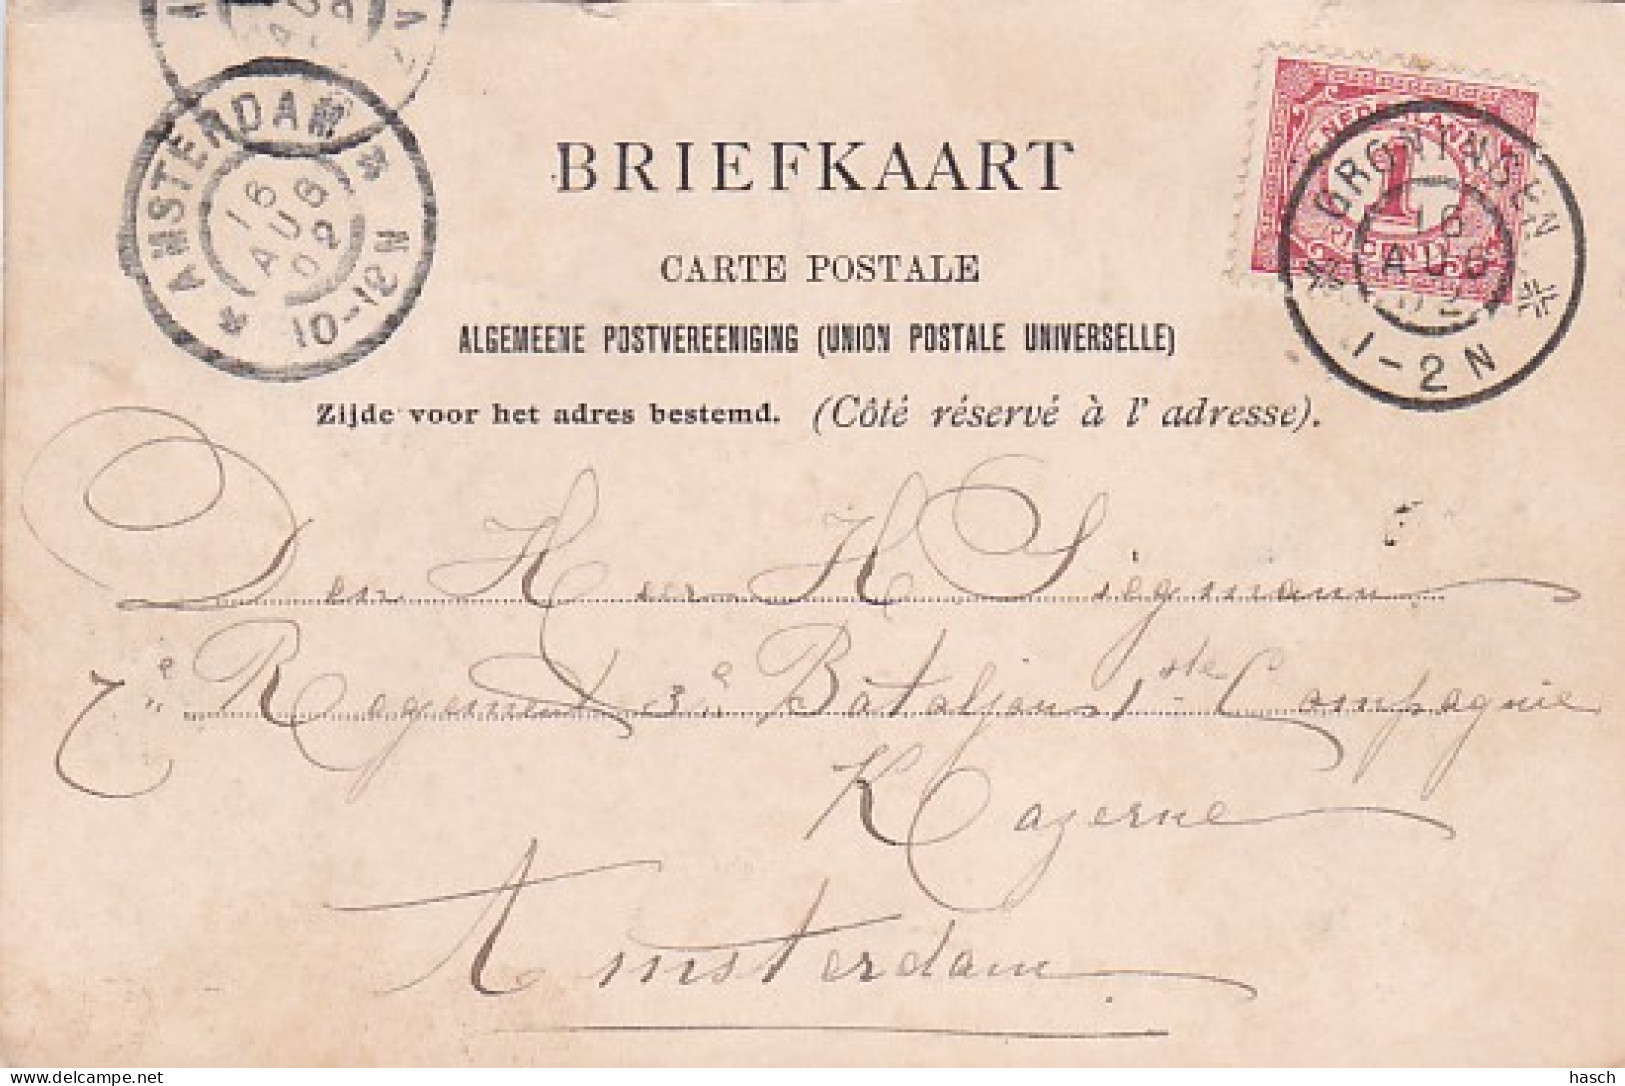 AMSTERDAM
16 AUG 02
10-12N
NEDERLAND
1
CENT
GRONINGEN
16 AUG 02
1-2N
BRIEFKAART
CARTE POSTALE
ALGEMEENE POSTVEREENIGING (UNION POSTALE UNIVERSELLE)
Zijde voor het adres bestemd. (Côté réservé à l' adresse).
Den Heer H Siegmann
7e Regement 3e Bataljon 1ste Compagnie
Kazerne
Amsterdam
hasch